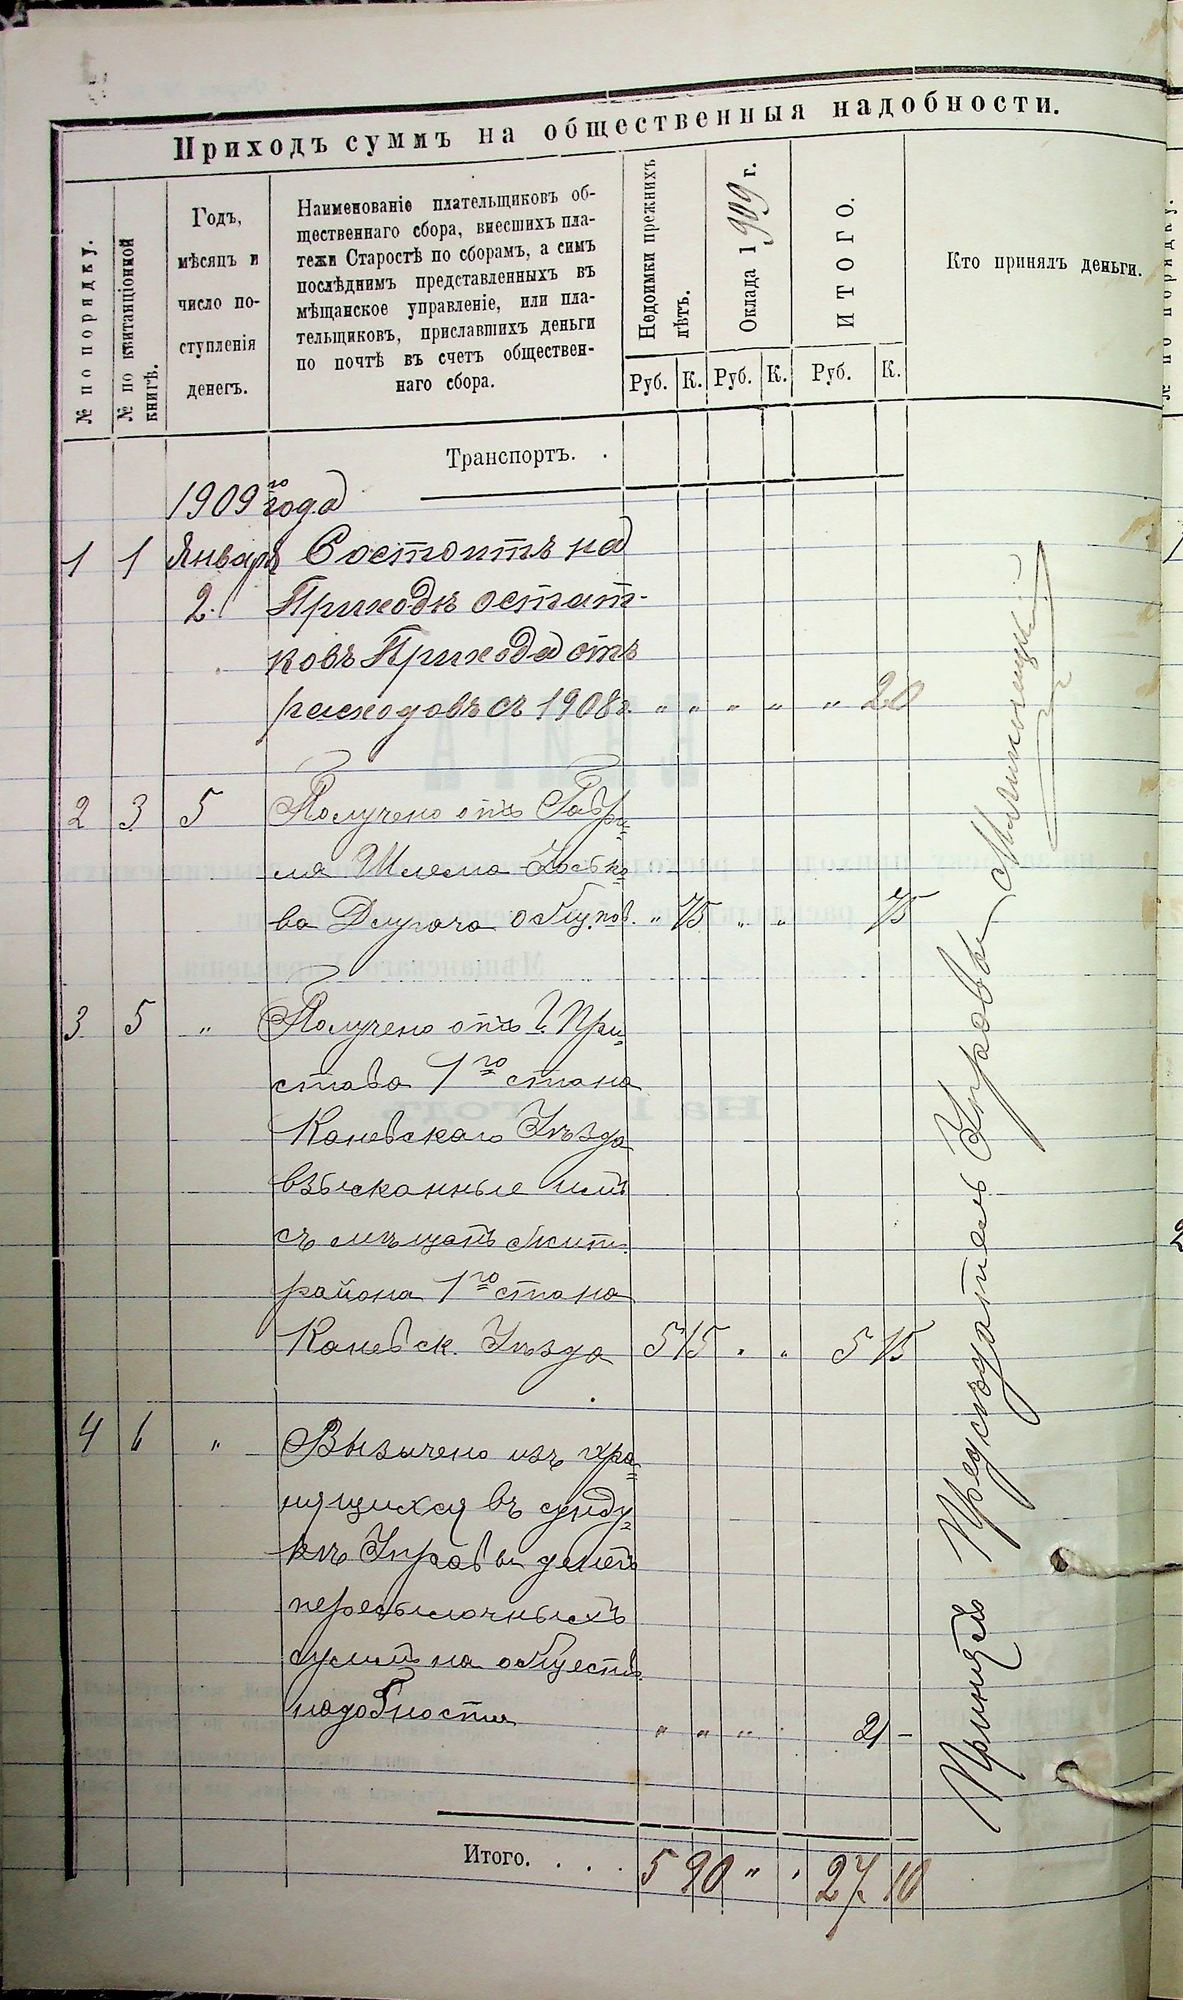 Приходъ суммъ на общественныя надобности.
№ по порядку.
№ по квитанціонной книгѣ.
Годъ,
мѣсяцъ и
число по-
ступленія
денегъ.
Наименованіе плательщиковъ об-
щественнаго сбора, внесшихъ пла-
тежи Старостѣ по сборамъ, а симъ
послѣднимъ представленныхъ въ
мѣщанское управленіе, или пла-
тельщиковъ, приславшихъ деньги
по почтѣ въ счетъ обществен-
наго сбора.
Недоимки прежнихъ лѣтъ.
Оклада 1909 г.
ИТОГО.
Кто принялъ деньги.
Руб. К. Руб. К. Руб. К.
Транспортъ. .
1909 го года
1 1 Января Состоитъ на
2. Приходѣ остат-
ковъ Прихода отъ
расходовъ съ 1908 г. " " " " " 20
2 3 5 Получено отъ Габри-
ла Шлема
ва Длугача общ. пов. " 75 " " 75
3 5 " Получено отъ Г. При-
става 1го стана
Каневскаго Уѣзда
взысканные имъ
съ мѣщанъ жит.
района 1го стана
Каневск. Уѣзда 5 15 " " 5 15
4 6 " Взычено изъ хра-
нящихся въ сунду-
кѣ Управы денегъ
пересылочныхъ
суммъ на обществ.
надобности " " " " 21 -
Итого. . . . 5 90 " " 27 10
Принялъ Предсѣдатель Управы